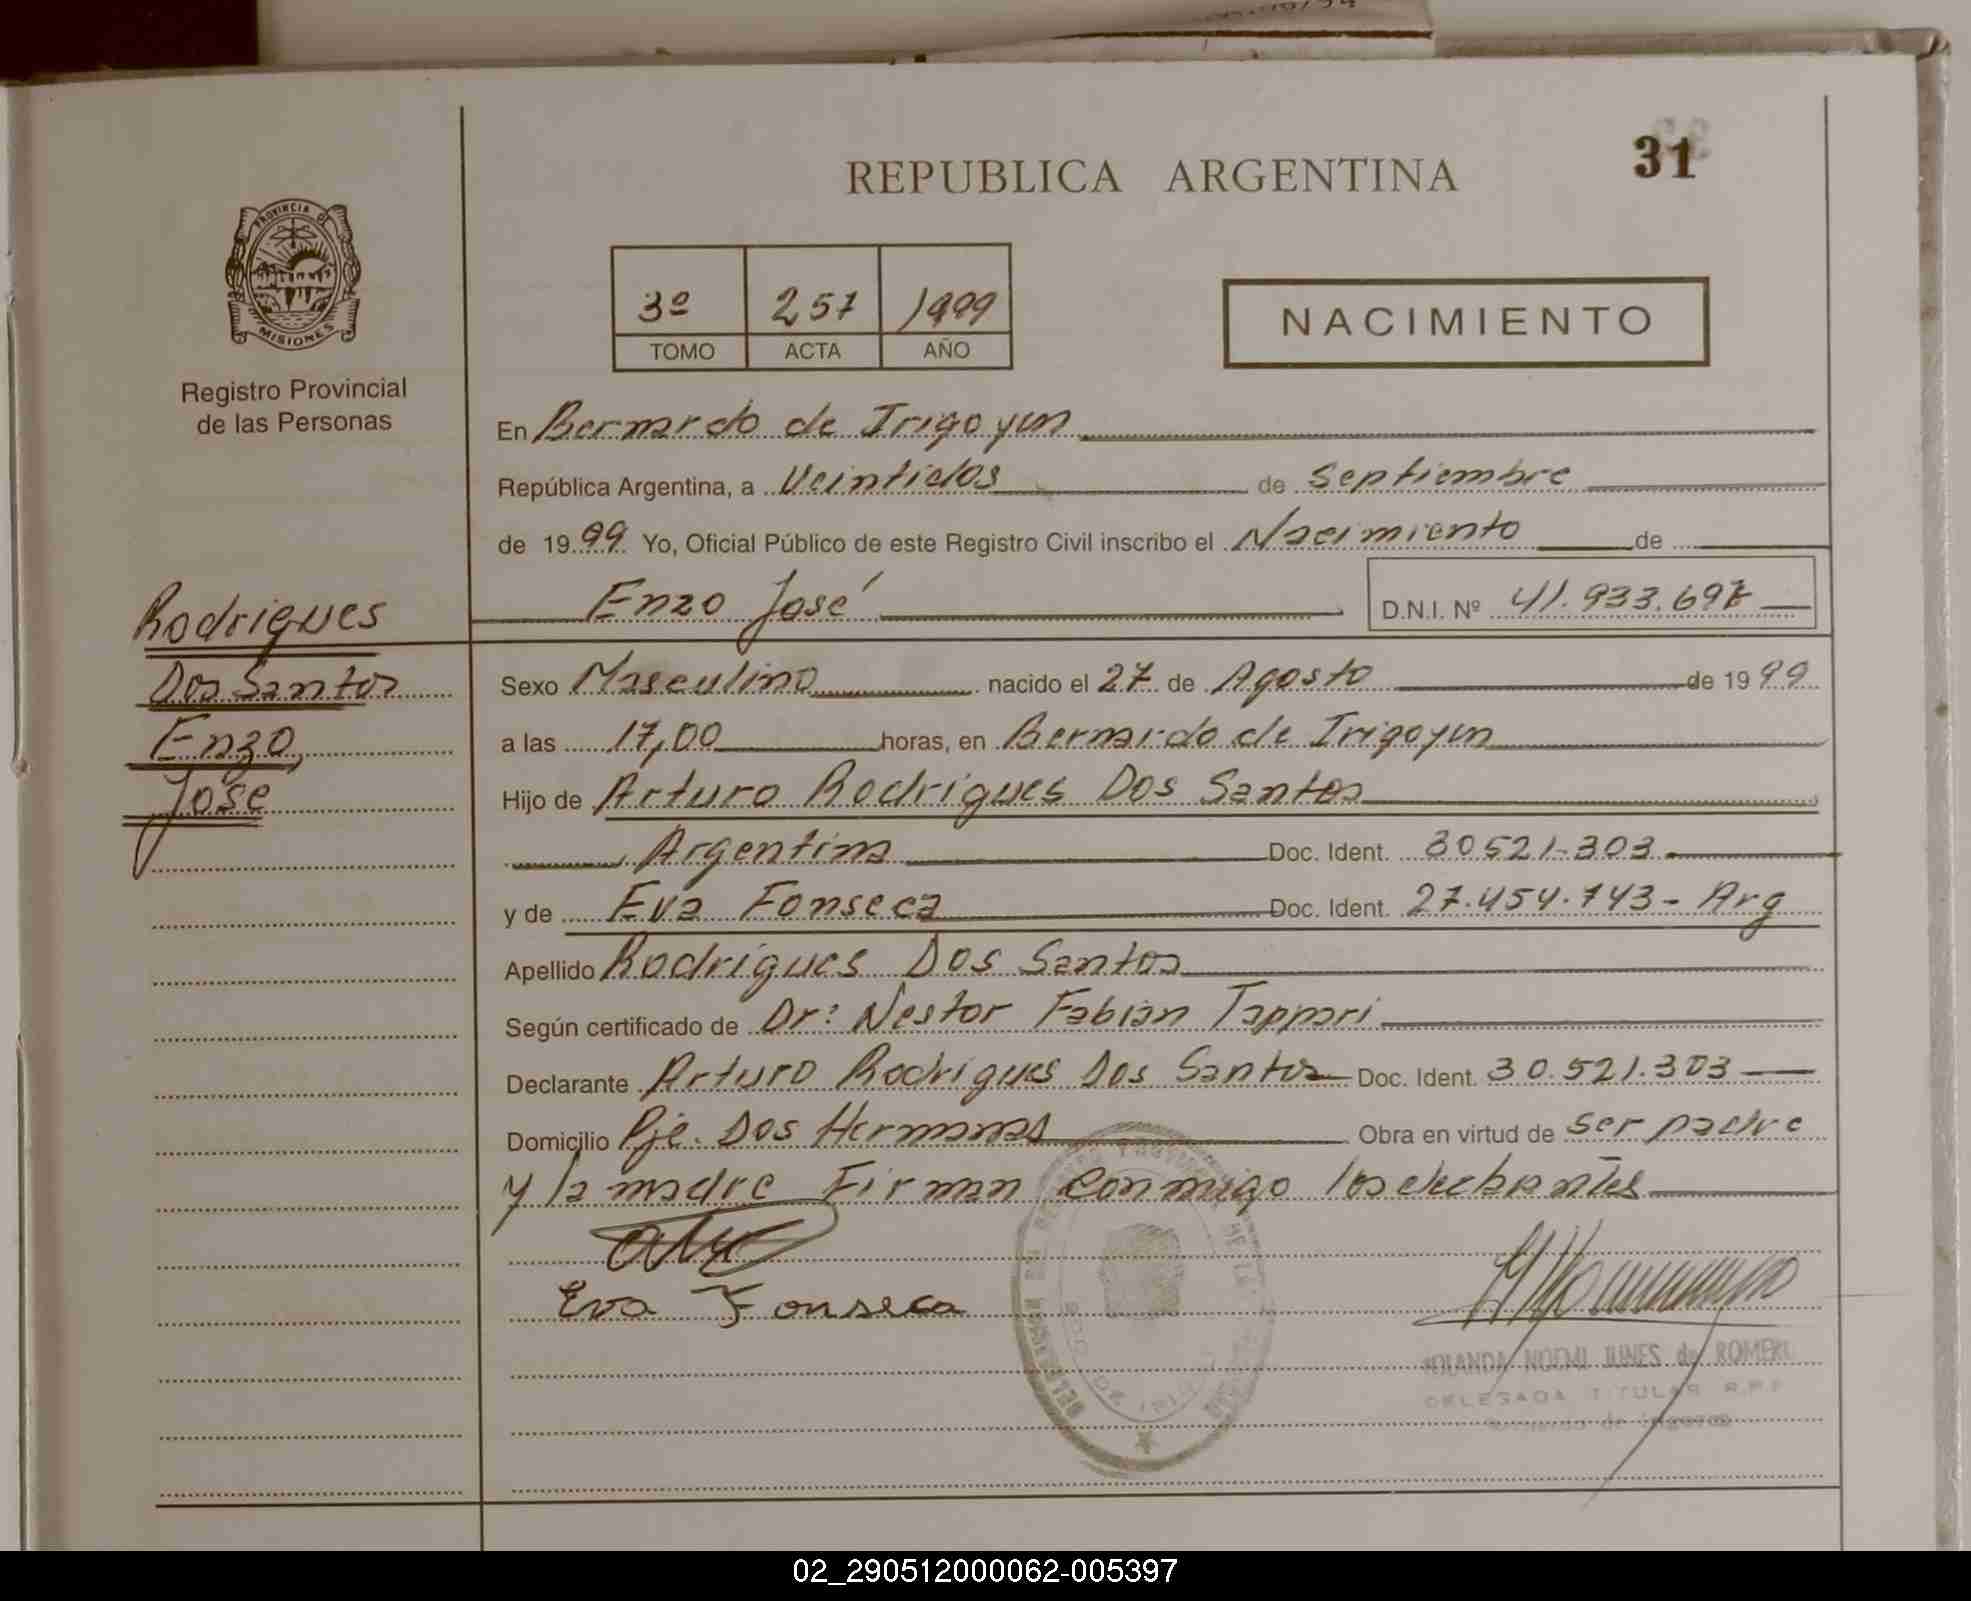 REPUBLICA ARGENTINA
31
PROVINCIA DE
MISIONES
Registro Provincial
de las Personas
3º 257 1999
TOMO ACTA AÑO
NACIMIENTO
En Bernardo de Irigoyen
República Argentina, a Veintidos de Septiembre
de 1999 Yo, Oficial Público de este Registro Civil inscribo el Nacimiento de
Enzo José D.N.I. Nº 41.933.697
Rodrigues
Dos Santos
Enzo,
José
Sexo Masculino nacido el 27 de Agosto de 1999
a las 17,00 horas, en Bernardo de Irigoyen
Hijo de Arturo Rodrigues Dos Santos
Argentina Doc. Ident. 30521.303
y de Eva Fonseca Doc. Ident. 27.454.743- Arg
Apellido Rodrigues Dos Santos
Según certificado de Dr: Nestor Fabian Tappari
Declarante Arturo Rodrigues Dos Santos Doc. Ident. 30.521.303
Domicilio Pje. Dos Hermanas Obra en virtud de ser padre
y la madre Firman conmigo los
Eva Fonseca
YOLANDA NOEMI JUNES de ROMERO
DELEGADA TITULAR R.P.P.
Bernardo de Irigoyen
02_290512000062-005397